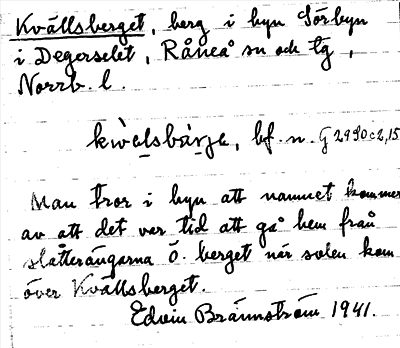 Kvällsberget, berg i byn Sörbyn
i Degerselet, Råneå sn och tg,
Norrb. l.
kwelsbärje, bf. n. G 2930c2,15
Man tror i byn att namnet kommer
av att det var tid att gå hem från
slåtterängarna ö. berget när solen kom
över Kvällsberget.
Edvin Brännström 1941.